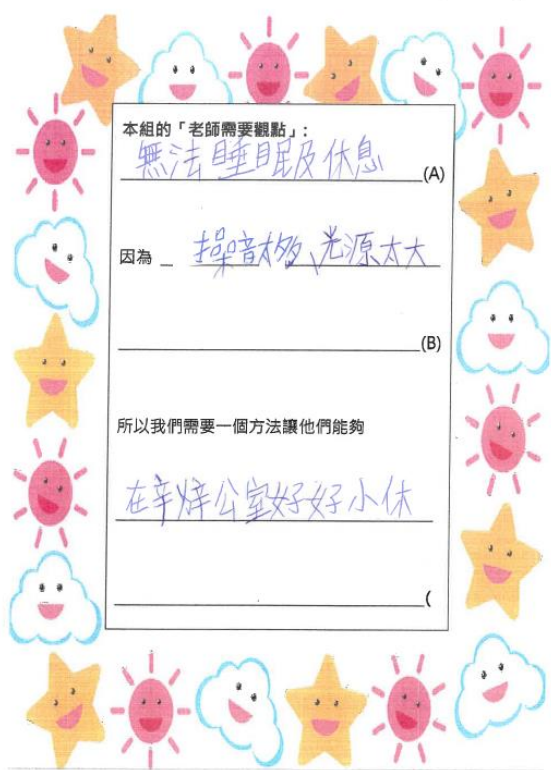 本組的「老師需要觀點」:
無法睡眠及休息
(A)
因為 _ 操音太多、光源太大
(B)
所以我們需要一個方法讓他們能夠
在辦公室好好小休
(